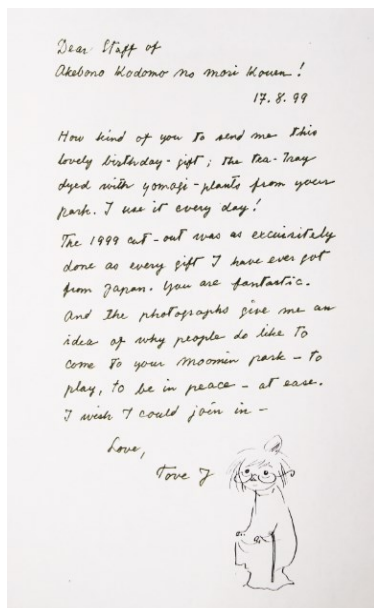 Dear Staff of
Akebono Kodomo no mori Kouen!
17.8.99
How kind of you to send me this
lovely birthday-gift; the tea-tray
dyed with yomogi-plants from your
park. I use it every day!
The 1999 cut-out was as excuisitely
done as every gift I have ever got
from Japan. You are fantastic.
And the photographs give me an
idea of why people do like to
come to your Moomin park – to
play, to be in peace – at ease.
I wish I could join in –
Love,
Tove J